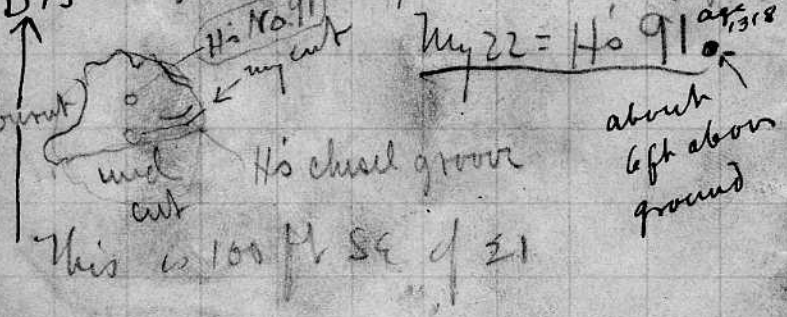 H's No. 91
my cut
My 22 = H's 91
age
1318
about
6 ft above
ground
med
cut
H's chisel groove
This is 100 ft SE of 21